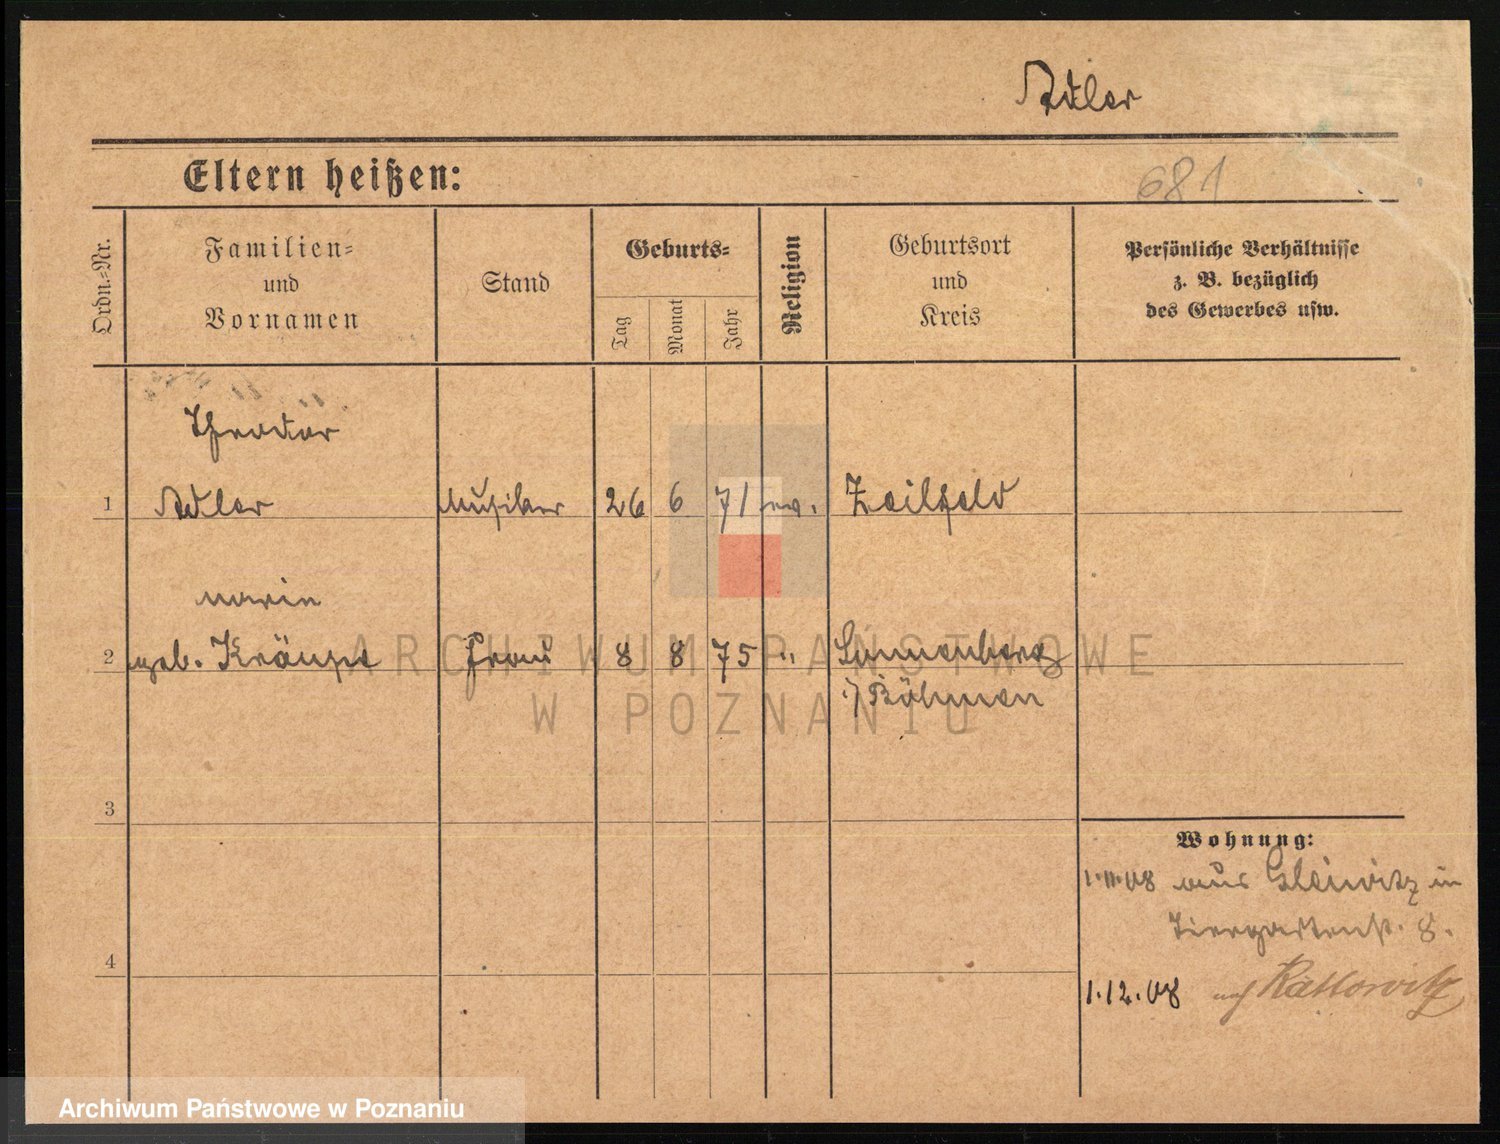 Adler
Eltern heißen:
681
Ordn.-Nr.
Familien-
und
Vornamen
Stand
Geburts-
Tag
Monat
Jahr
Religion
Geburtsort
und
Kreis
Persönliche Verhältnisse
z. B. bezüglich
des Gewerbes usw.
Theodor
1 Adler Musiker 26 6 71 ev. Zeilfeld
Marie
2 geb. Frau 8 8 75 " Sonnenberg
i/ Böhmen
3
Wohnung:
1.11.08 aus Gleiwitz in
Tiergartenstr. 8.
4
1.12.08 nach Kattowitz
ARCHIWUM PAŃSTWOWE
W POZNANIU
Archiwum Państwowe w Poznaniu